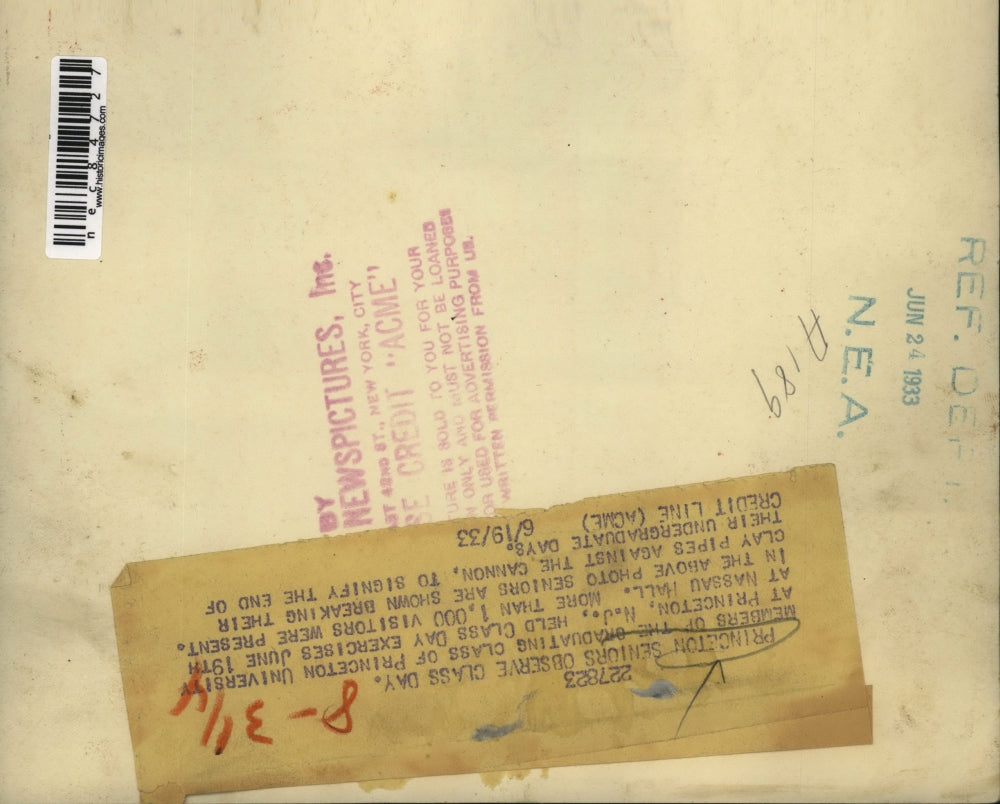 227823
PRINCETON SENIORS OBSERVE CLASS DAY.
MEMBERS OF THE GRADUATING CLASS OF PRINCETON UNIVERSITY
AT PRINCETON, N.J., HELD CLASS DAY EXERCISES JUNE 19TH
AT NASSAU HALL. MORE THAN 1,000 VISITORS WERE PRESENT.
IN THE ABOVE PHOTO SENIORS ARE SHOWN BREAKING THEIR
CLAY PIPES AGAINST THE CANNON, TO SIGNIFY THE END OF
THEIR UNDERGRADUATE DAYS.
CREDIT LINE (ACME) 6/19/33
8-3 1/4
BY
NEWSPICTURES, Inc.
42ND ST., NEW YORK, CITY
CREDIT "ACME"
IS SOLD TO YOU FOR YOUR
ONLY AND MUST NOT BE LOANED
OR USED FOR ADVERTISING PURPOSES
WRITTEN PERMISSION FROM US.
#189
N.E.A.
JUN 24 1933
REF. DEPT.
nec84727
www.historicimages.com